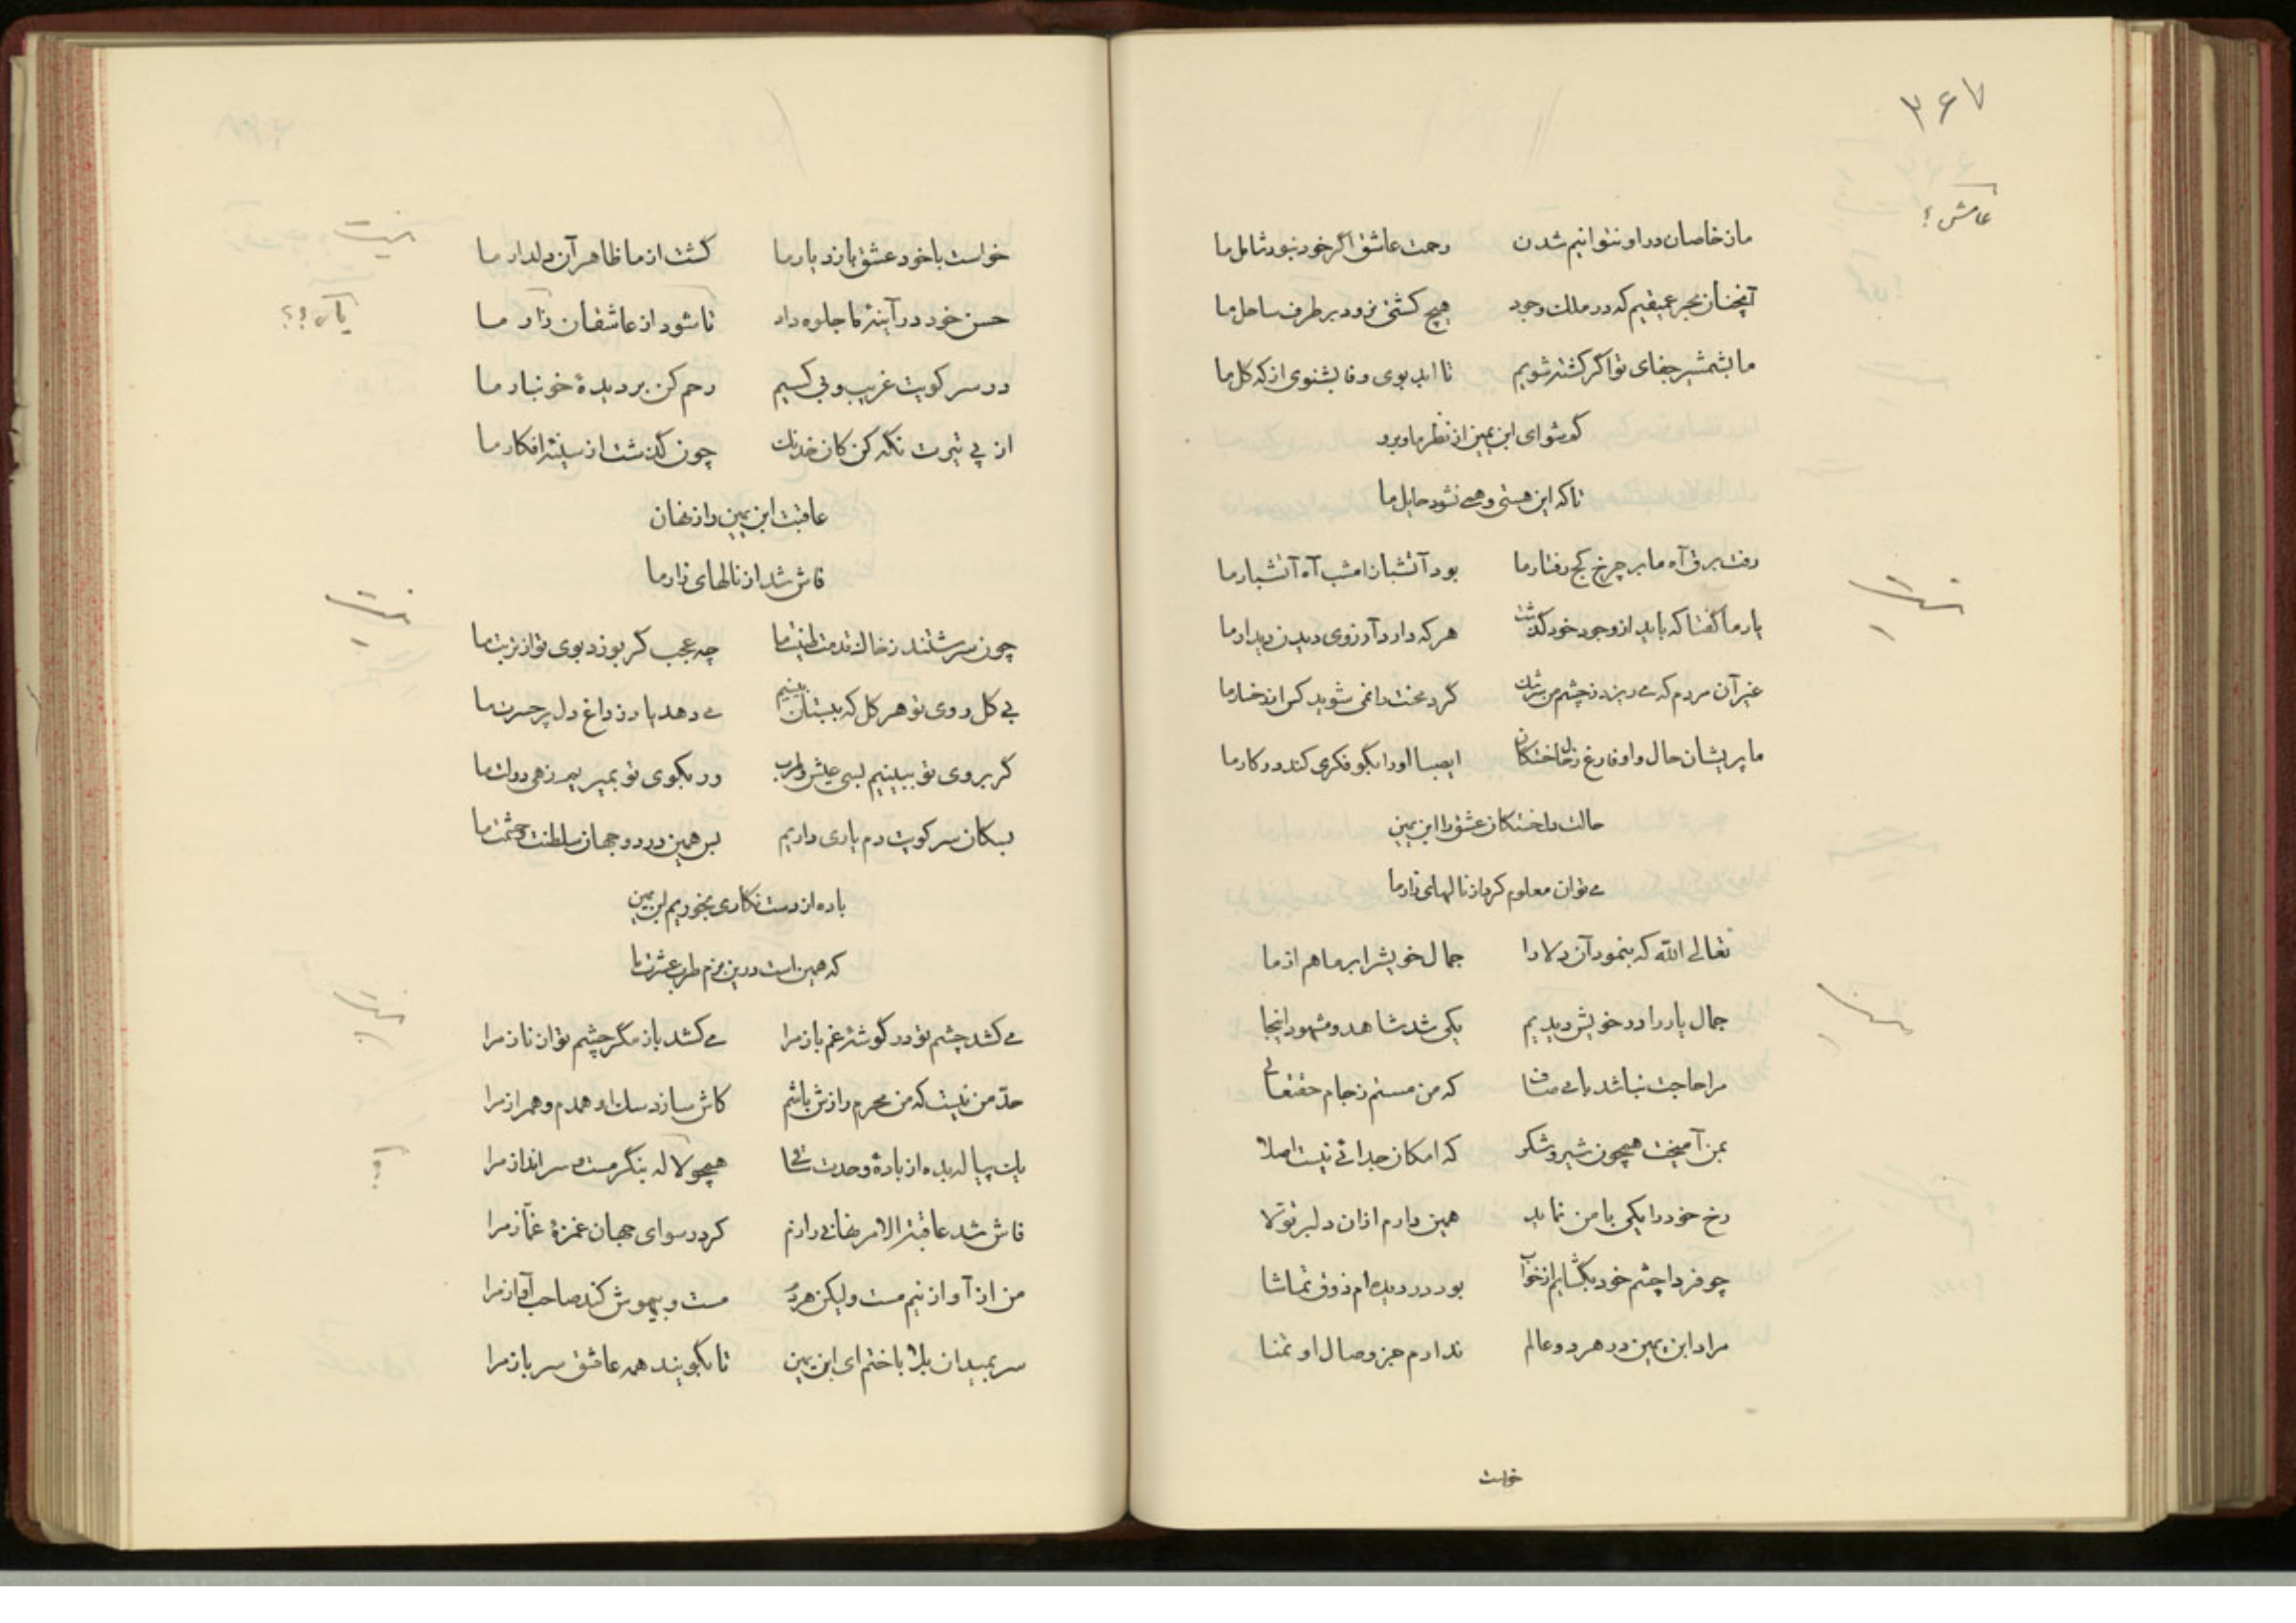 ۳۶۷
عامش؟
ما ز خاصان در او نتوانیم شدن رحمت عاشق اگر خود نبود شامل ما
آنچنان بحر عمیقیم که در ملک وجود هیچ کشتی نرود بر طرف ساحل ما
ما بشمشیر جفای تو اگر کشته شویم تا ابد بوی وفا بشنوی از کل ما
کو شو ای ابن یمین از نظر ما و برو
تا که این هستی وهمی نشود حایل ما
رفت برق آه ما بر چرخ کج رفتار ما بود آتشبار امشب آه آتشبار ما
نیست
یار ما گفتا که باید از وجود خود گذشت هر که دارد آرزوی دیدن دیدار ما
غیر آن مردم که می ریزد ز چشم من سرشک گرد محنت را نمی شوید کس از رخسار ما
ما پریشان حال و او فارغ ز دل ای صبا او را بگو فکری کند در کار ما
حالت دلخستکان عشق را ابن یمین
می توان معلوم کرد از نالهای زار ما
تعالی الله که بنمود آن دلارا جمال خویش را بر ما هم از ما
جمال یار را در خویش دیدیم یکی شد شاهد و مشهود اینجا
مرا حاجت نباشد با می صاف که من مستم ز جام حقتعالی
بمن آمیخت همچون شیر و شکر که امکان جدائی نیست اصلا
رخ خود را یکی با من نماید همین دارم ازان دلبر تولا
چو فردا چشم خود بکشایم از خواب بود در دیده ام ذوق تماشا
مراد ابن یمین در هر دو عالم ندارم جز وصال او تمنا
خواست
خواست با خود عشق بازد یار ما گشت از ما ظاهر آن دلدار ما
نیست
حسن خود در آینهٔ ما جلوه داد تا شود از عاشقان زار ما
در سر کویت غریب و بی کسیم رحم کن بر دیدهٔ خونبار ما
از پی تیرت نگه کن کان خدنک چون گذشت از سینهٔ افکار ما
عاقبت ابن یمین راز نهان
فاش شد از نالهای زار ما
نیست
چون سرشتند ز خاک قدمت طینت ما چه عجب گر بوزد بوی تو از تربت ما
بی کل روی تو هر کل که ببستان بینیم می دهد یاد ز داغ دل پر حسرت ما
گر بروی تو ببینیم بسی عیش و طرب ور بکوی تو بمیریم زهی دولت ما
بسکان سر کویت دم یاری داریم بس همین در دو جهان سلطنت و حشمت ما
باده از دست نکاری بخوریم ابن یمین
که همین است درین بزم طرب عشرت ما
نیست
می کشد چشم تو در گوشهٔ غم باز مرا می کشد باز مگر چشم تو از ناز مرا
حدّ من نیست که من محرم رازش باشم کاش سازد سک او همدم و همراز مرا
یک پیاله بده از بادهٔ وحدت ساقی همچو لاله بنگر مست سر انداز مرا
فاش شد عاقبة الامر نهانی رازم کرد رسوای جهان غمزهٔ غمّاز مرا
من از آواز نیم مست ولیکن هر دم مست و بیهوش کند صاحب آواز مرا
سر بمیدان بلا باختم ای ابن یمین تا بگویند همه عاشق سرباز مرا